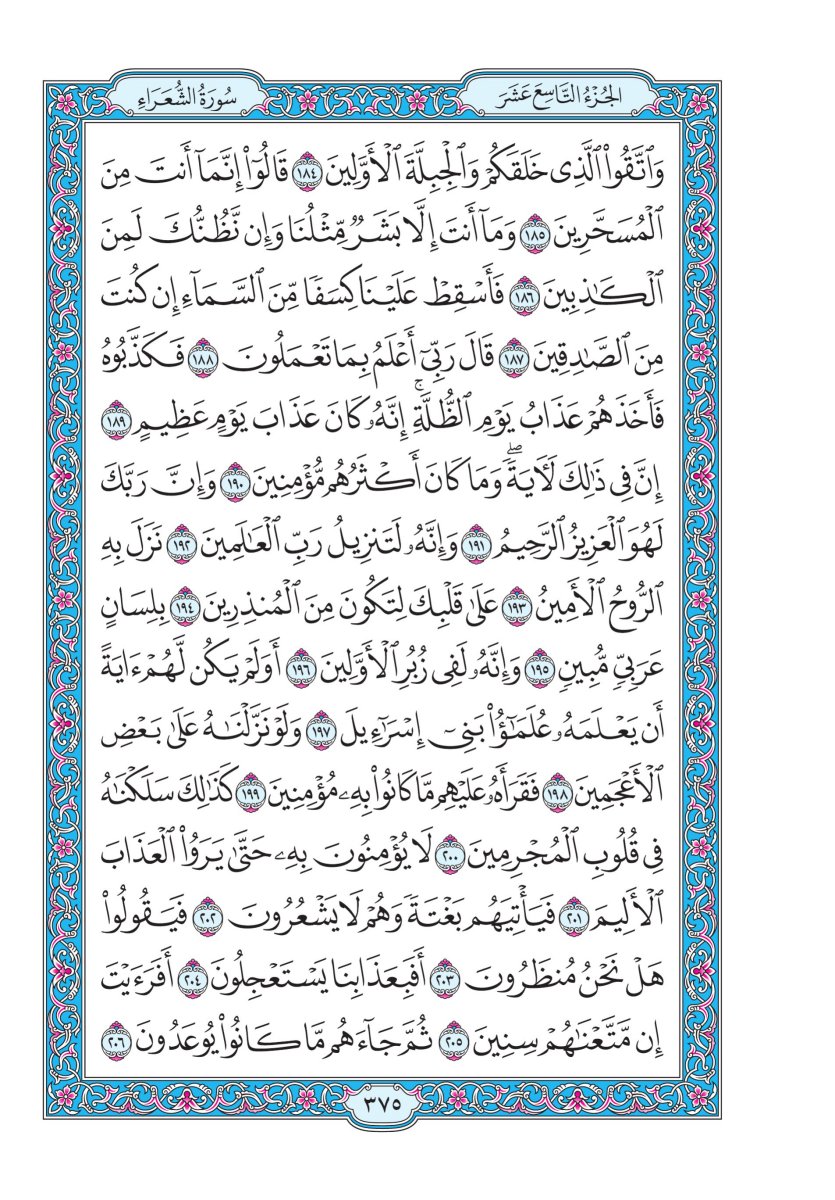 الجُزْءُ التَّاسِعَ عَشَرَ
سُورَةُ الشُّعَرَاءِ
وَٱتَّقُوا۟ ٱلَّذِى خَلَقَكُمْ وَٱلْجِبِلَّةَ ٱلْأَوَّلِينَ ١٨٤ قَالُوٓا۟ إِنَّمَآ أَنتَ مِنَ
ٱلْمُسَحَّرِينَ ١٨٥ وَمَآ أَنتَ إِلَّا بَشَرٌ مِّثْلُنَا وَإِن نَّظُنُّكَ لَمِنَ
ٱلْكَـٰذِبِينَ ١٨٦ فَأَسْقِطْ عَلَيْنَا كِسَفًا مِّنَ ٱلسَّمَآءِ إِن كُنتَ
مِنَ ٱلصَّـٰدِقِينَ ١٨٧ قَالَ رَبِّىٓ أَعْلَمُ بِمَا تَعْمَلُونَ ١٨٨ فَكَذَّبُوهُ
فَأَخَذَهُمْ عَذَابُ يَوْمِ ٱلظُّلَّةِ ۚ إِنَّهُۥ كَانَ عَذَابَ يَوْمٍ عَظِيمٍ ١٨٩
إِنَّ فِى ذَٰلِكَ لَـَٔايَةً ۖ وَمَا كَانَ أَكْثَرُهُم مُّؤْمِنِينَ ١٩٠ وَإِنَّ رَبَّكَ
لَهُوَ ٱلْعَزِيزُ ٱلرَّحِيمُ ١٩١ وَإِنَّهُۥ لَتَنزِيلُ رَبِّ ٱلْعَـٰلَمِينَ ١٩٢ نَزَلَ بِهِ
ٱلرُّوحُ ٱلْأَمِينُ ١٩٣ عَلَىٰ قَلْبِكَ لِتَكُونَ مِنَ ٱلْمُنذِرِينَ ١٩٤ بِلِسَانٍ
عَرَبِىٍّ مُّبِينٍ ١٩٥ وَإِنَّهُۥ لَفِى زُبُرِ ٱلْأَوَّلِينَ ١٩٦ أَوَلَمْ يَكُن لَّهُمْ ءَايَةً
أَن يَعْلَمَهُۥ عُلَمَـٰٓؤُا۟ بَنِىٓ إِسْرَٰٓءِيلَ ١٩٧ وَلَوْ نَزَّلْنَـٰهُ عَلَىٰ بَعْضِ
ٱلْأَعْجَمِينَ ١٩٨ فَقَرَأَهُۥ عَلَيْهِم مَّا كَانُوا۟ بِهِۦ مُؤْمِنِينَ ١٩٩ كَذَٰلِكَ سَلَكْنَـٰهُ
فِى قُلُوبِ ٱلْمُجْرِمِينَ ٢٠٠ لَا يُؤْمِنُونَ بِهِۦ حَتَّىٰ يَرَوُا۟ ٱلْعَذَابَ
ٱلْأَلِيمَ ٢٠١ فَيَأْتِيَهُم بَغْتَةً وَهُمْ لَا يَشْعُرُونَ ٢٠٢ فَيَقُولُوا۟
هَلْ نَحْنُ مُنظَرُونَ ٢٠٣ أَفَبِعَذَابِنَا يَسْتَعْجِلُونَ ٢٠٤ أَفَرَءَيْتَ
إِن مَّتَّعْنَـٰهُمْ سِنِينَ ٢٠٥ ثُمَّ جَآءَهُم مَّا كَانُوا۟ يُوعَدُونَ ٢٠٦
٣٧٥